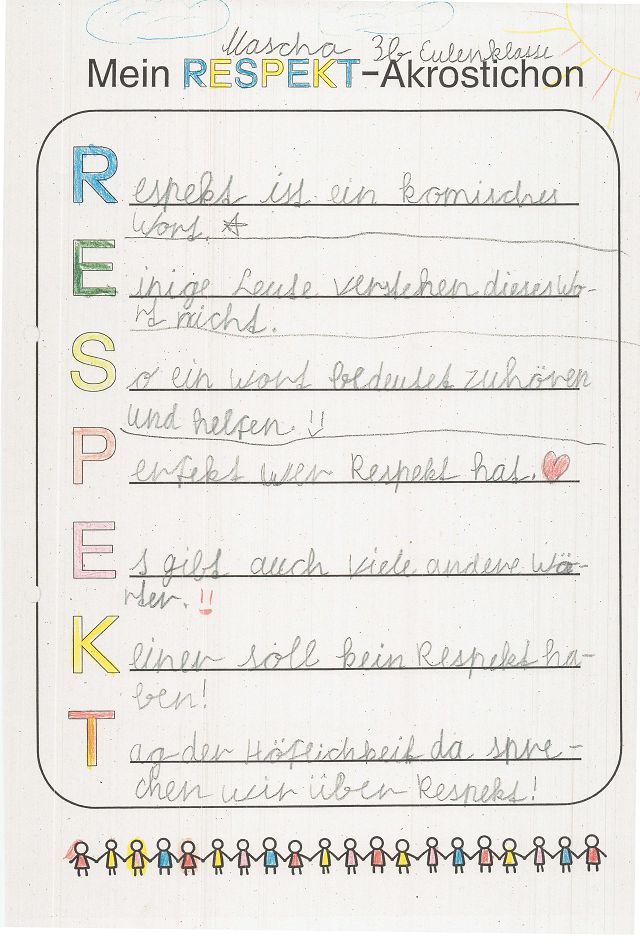 Mascha 3b Eulenklasse
Mein RESPEKT-Akrostichon
Respekt ist ein komisches
Wort.
Einige Leute verstehen dieses Wo-
rt nicht.
So ein Wort bedeutet zuhören
und helfen.
Perfekt wer Respekt hat.
Es gibt auch viele andere Wö-
rter.
Keiner soll kein Respekt ha-
ben!
Tag der Höfleichkeit da spre-
chen wir über Respekt!